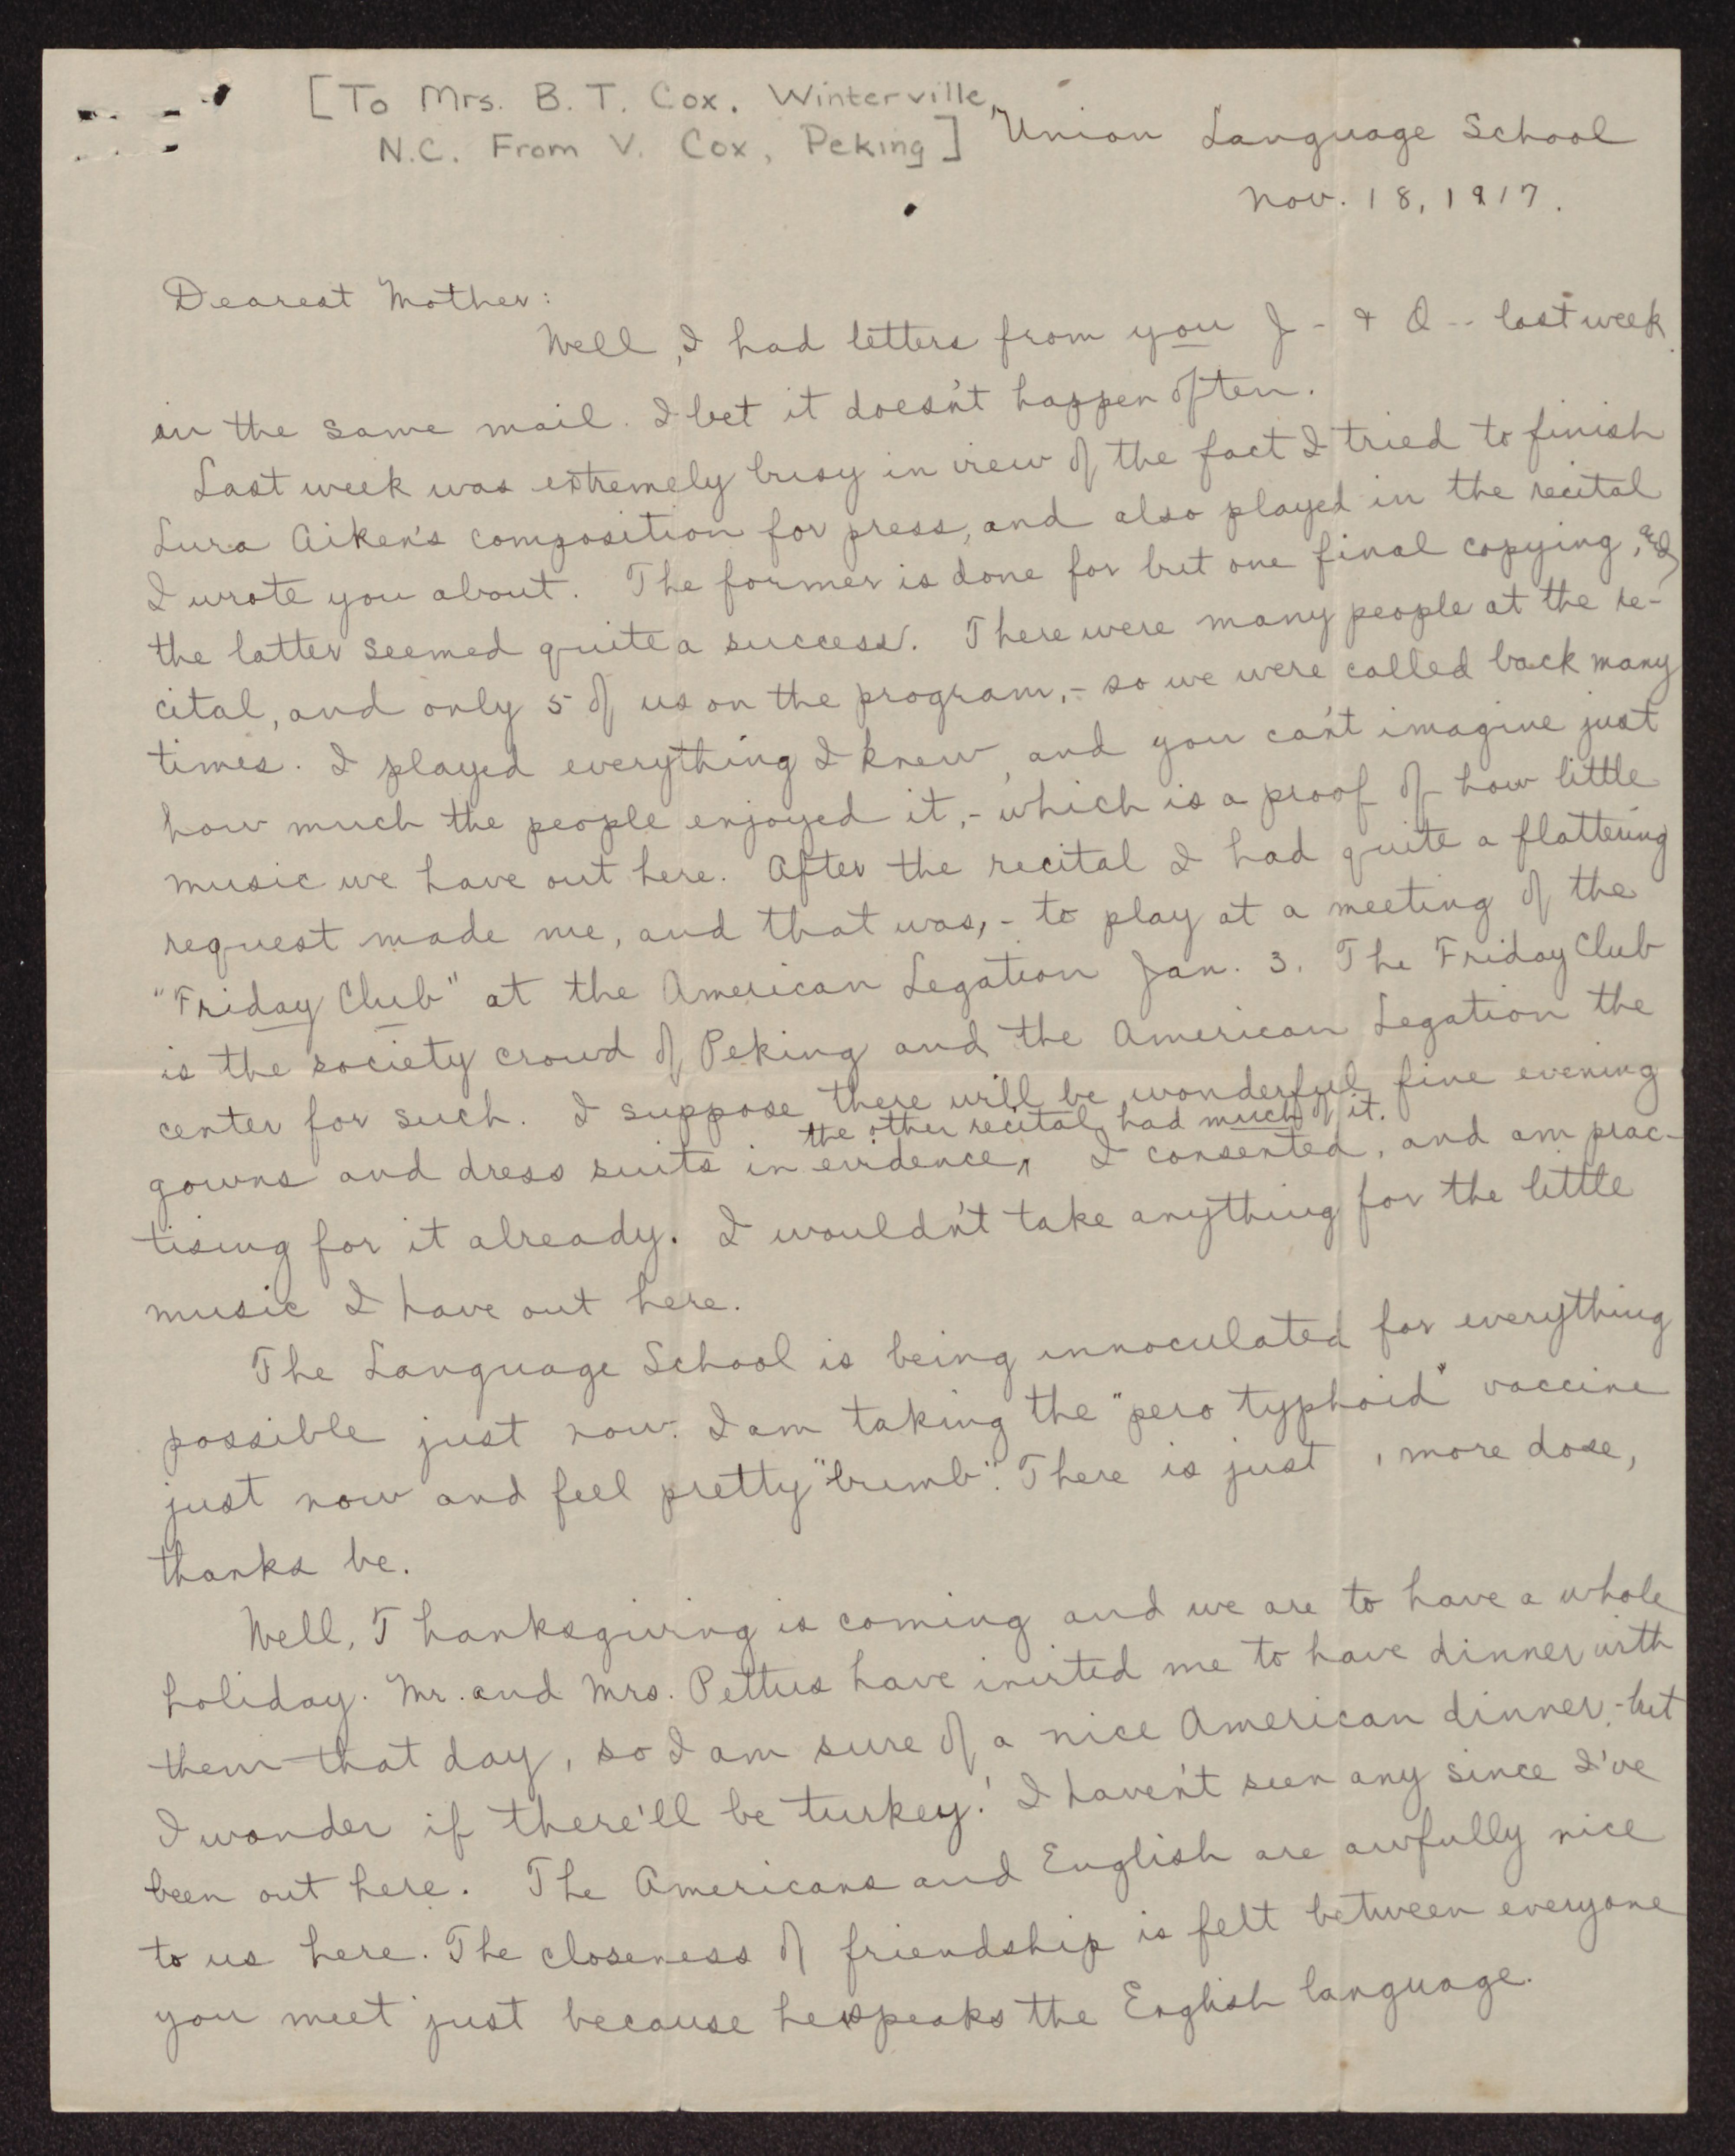 [To Mrs. B. T. Cox. Winterville,
N.C. From V. Cox, Peking]
Union Language School
Nov. 18, 1917.
Dearest Mother:
Well, I had letters from you J - + O -- last week
in the same mail. I bet it doesn't happen often.
Last week was extremely busy in view of the fact I tried to finish
Lura Aiken's composition for press, and also played in the recital
I wrote you about. The former is done for but one final copying, and
the latter seemed quite a success. There were many people at the re-
cital, and only 5 of us on the program, - so we were called back many
times. I played everything I knew, and you can't imagine just
how much the people enjoyed it, - which is a proof of how little
music we have out here. After the recital I had quite a flattering
request made me, and that was, - to play at a meeting of the
"Friday Club" at the American Legation Jan. 3. The Friday Club
is the society crowd of Peking and the American Legation the
center for such. I suppose there will be wonderful, fine evening
the other recital had much of it.
gowns and dress suits in evidence, I consented, and am prac-
tising for it already. I wouldn't take anything for the little
music I have out here.
The Language School is being innoculated for everything
possible just now. I am taking the "pero typhoid" vaccine
just now and feel pretty "bumb". There is just 1 more dose,
thanks be.
Well, Thanksgiving is coming and we are to have a whole
holiday. Mr. and Mrs. Pettus have invited me to have dinner with
them that day, so I am sure of a nice American dinner, - but
I wonder if there'll be turkey! I haven't seen any since I've
been out here. The Americans and English are awfully nice
to us here. The closeness of friendship is felt between everyone
you meet just because he speaks the English language.